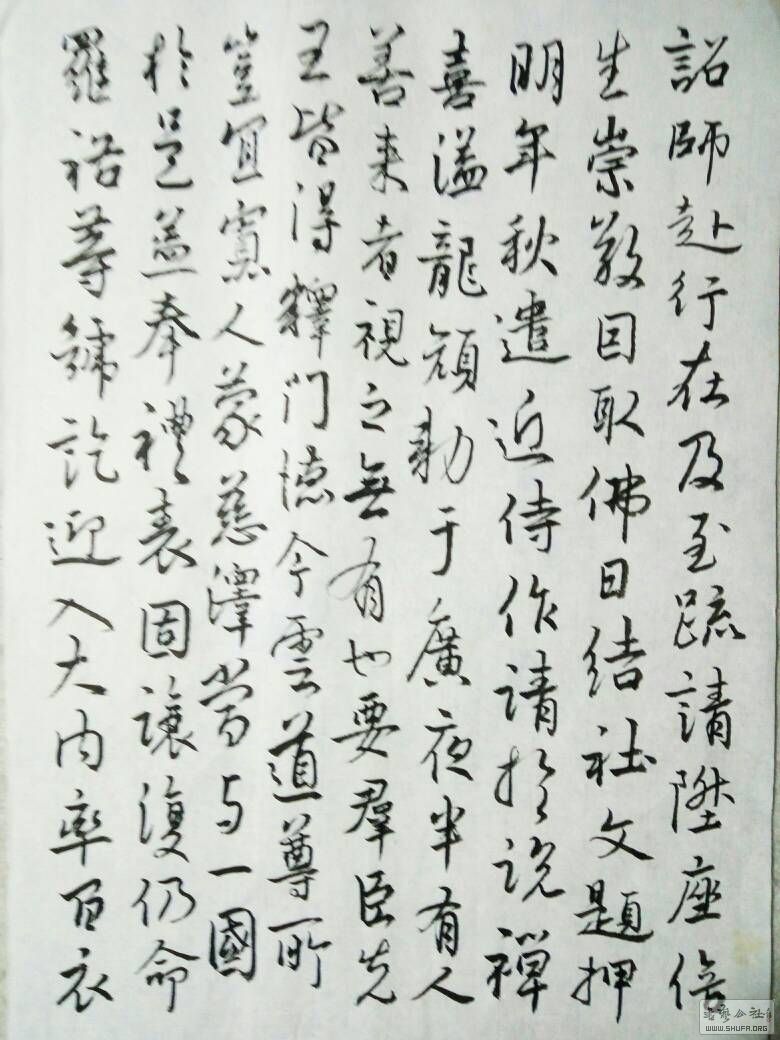 詔師赴行在及至疏請陞座倍
生崇敬因取佛日結社文題押
明年秋遣近侍作請於說禪
喜溢龍顏勅于廣夜半有人
善来者視之無有也要羣臣先
王皆得釋門德今雲道尊所
豈宜寡人蒙慈澤當与一國
於是益奉禮表固讓復仍命
羅裕等歸訖迎入大内率百衣
WWW.SHUFA.ORG